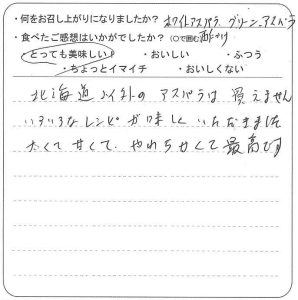 ・何をお召し上がりになりましたか？ホワイトアスパラ、グリーンアスパラ
・食べたご感想はいかがでしたか？（○で囲む）
とっても美味しい！ ・おいしい ・ふつう
・ちょっとイマイチ ・おいしくない
北海道以外のアスパラは買えません
いろいろなレシピが味しくいただきました
太くて甘くてやわらかくて最高です